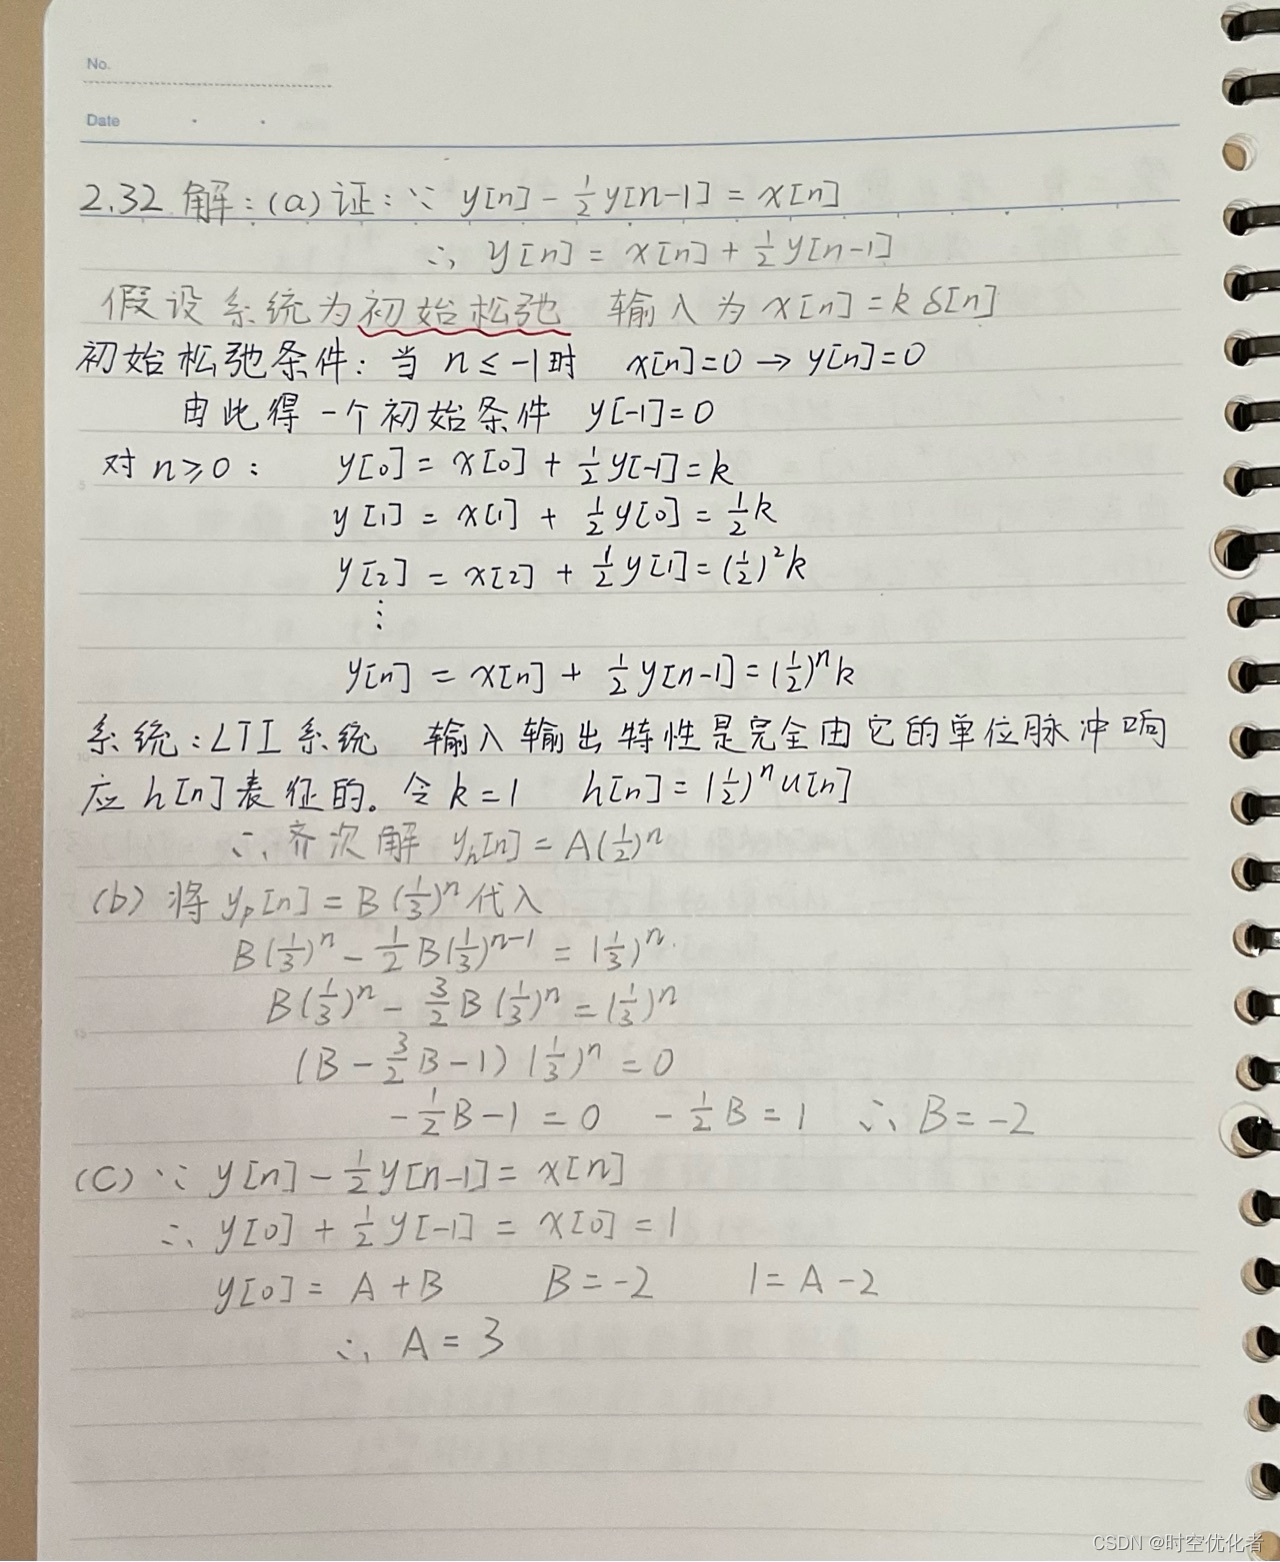 No.
Date
2.32 解:(a)证:∵ y[n] - 1/2 y[n-1] = x[n]
∴ y[n] = x[n] + 1/2 y[n-1]
假设系统为初始松弛 输入为 x[n] = k δ[n]
初始松弛条件: 当 n ≤ -1时 x[n]=0 → y[n]=0
由此得一个初始条件 y[-1]=0
对 n≥0: y[0] = x[0] + 1/2 y[-1] = k
y[1] = x[1] + 1/2 y[0] = 1/2 k
y[2] = x[2] + 1/2 y[1] = (1/2)²k
⋮
y[n] = x[n] + 1/2 y[n-1] = (1/2)ⁿk
系统:LTI系统 输入输出特性是完全由它的单位脉冲响
应h[n]表征的。令k=1 h[n]=(1/2)ⁿu[n]
∴齐次解 yₕ[n] = A(1/2)ⁿ
(b) 将 yₚ[n] = B(1/3)ⁿ代入
B(1/3)ⁿ - 1/2 B(1/3)ⁿ⁻¹ = (1/3)ⁿ
B(1/3)ⁿ - 3/2 B(1/3)ⁿ = (1/3)ⁿ
(B - 3/2 B - 1)(1/3)ⁿ = 0
-1/2 B - 1 = 0 -1/2 B = 1 ∴ B = -2
(C) ∵ y[n] - 1/2 y[n-1] = x[n]
∴ y[0] + 1/2 y[-1] = x[0] = 1
y[0] = A + B B = -2 1 = A - 2
∴ A = 3
CSDN @时空优化者